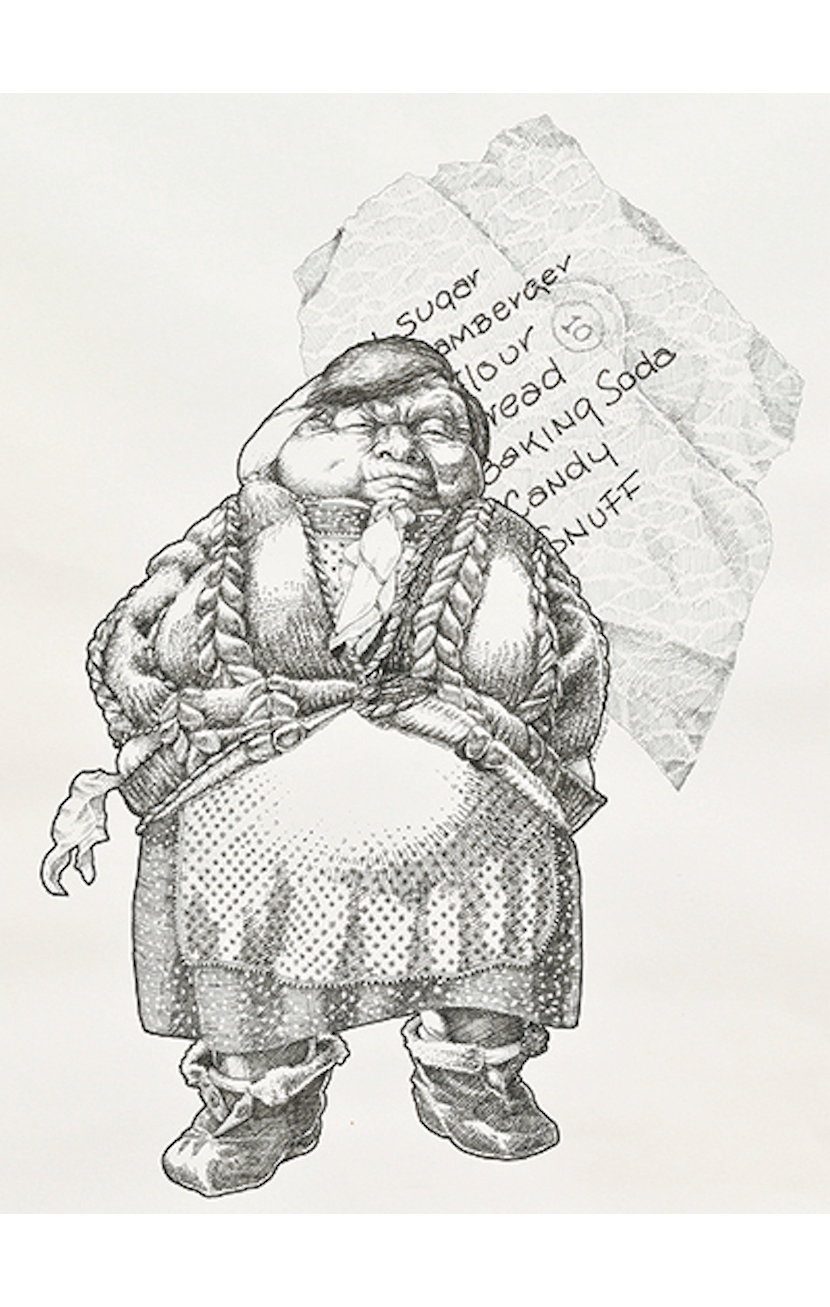 Sugar
amBerger
10
lour
read
BaKINg Soda
Candy
SNuFF